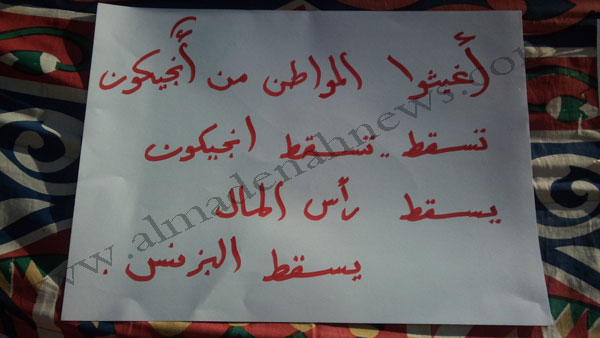 أغيثوا المواطن من أنجيكون
تسقط .. تسقط انجيكون
يسقط رأس المال
يسقط البزنس .
www.almadenahnews.com